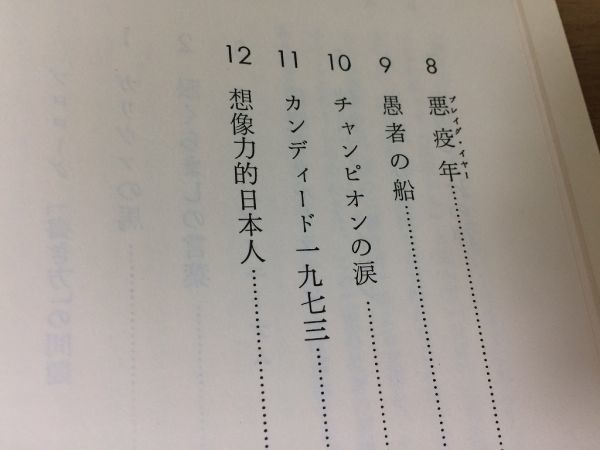 8 悪疫年……………
プレイグ・イヤー
9 愚者の船……………
10 チャンピオンの涙……………
11 カンディード一九七三……………
12 想像力的日本人……………